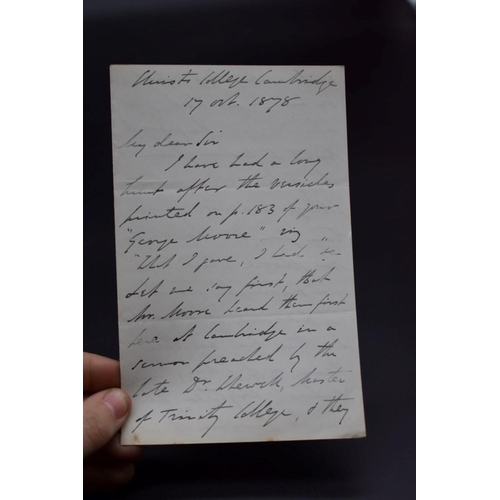 Christs College Cambridge
17 Oct. 1878
My dear Sir
I have had a long
hunt after the versicles
printed on p. 183 of your
"George Moore" viz
"What I gave, I had &c
Let me say first, that
Mr. Moore heard them first
here at Cambridge in a
sermon preached by the
late Dr. Whewell, Master
of Trinity College, & they